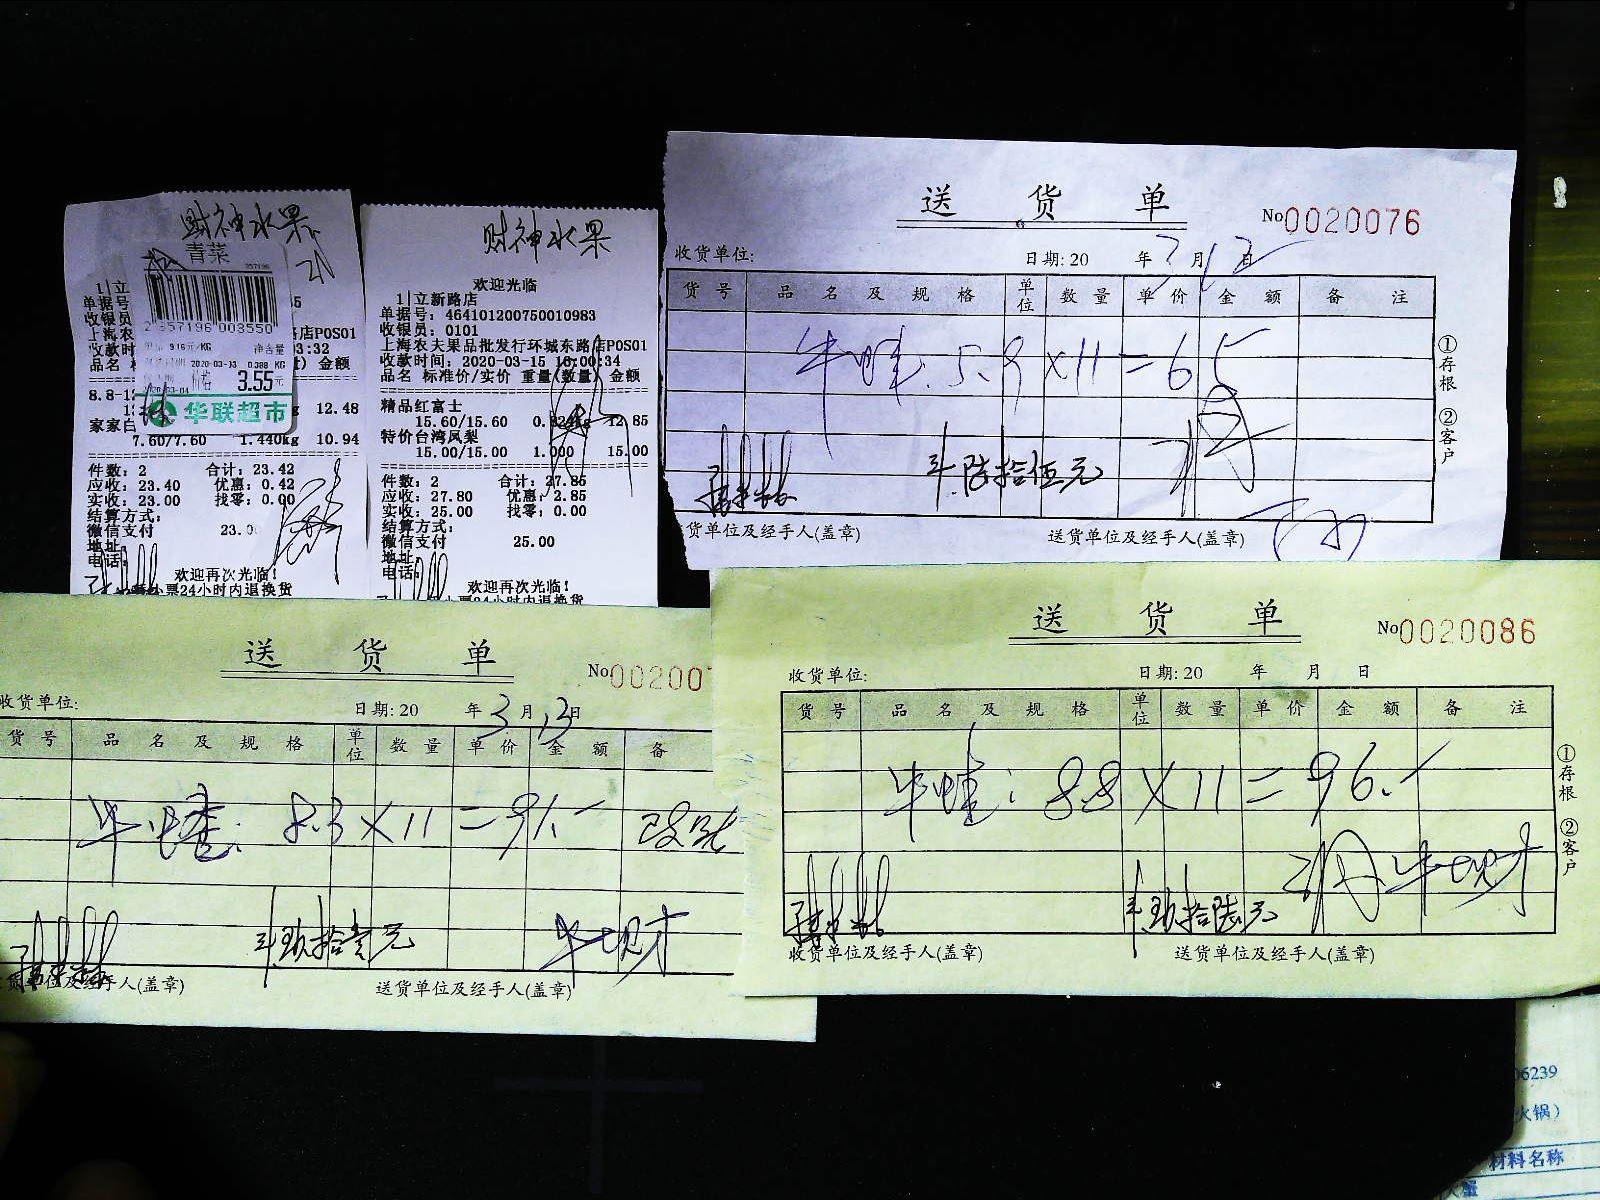 财神水果
青菜
357196
2 357196 003550
净含量
2020-03-13 0.388 KG
3.55元
华联超市
1|立
单据号
收银员
上海农
收款时
路店POS01
品名
金额
8.8-12
12.48
家家白
7.60/7.60 1.440kg 10.94
件数: 2 合计: 23.42
应收: 23.40 优惠: 0.42
实收: 23.00 找零: 0.00
结算方式:
微信支付 23.0
地址:
电话:
欢迎再次光临!
小票24小时内退换货
财神水果
欢迎光临
1|立新路店
单据号: 464101200750010983
收银员: 0101
上海农夫果品批发行环城东路店POS01
收款时间: 2020-03-15 16:00:34
品名 标准价/实价 重量(数量) 金额
精品红富士
15.60/15.60 0.824kg 12.85
特价台湾凤梨
15.00/15.00 1.000 15.00
件数: 2 合计: 27.85
应收: 27.80 优惠: 2.85
实收: 25.00 找零: 0.00
结算方式:
微信支付 25.00
地址:
电话:
欢迎再次光临!
小票24小时内退换货
送货单
No 0020076
收货单位: 日期: 20 年 3 月 12 日
货号 品名及规格 单位 数量 单价 金额 备注
牛蛙: 5.9×11=65
陆拾伍元
货单位及经手人(盖章) 送货单位及经手人(盖章)
①存根 ②客户
送货单
No 002007
收货单位: 日期: 20 年 3 月 13 日
货号 品名及规格 单位 数量 单价 金额 备
牛蛙: 8.3×11=91.-
玖拾壹元
货单位及经手人(盖章) 送货单位及经手人(盖章)
送货单
No 0020086
收货单位: 日期: 20 年 月 日
货号 品名及规格 单位 数量 单价 金额 备注
牛蛙: 8.8×11=96.-
玖拾陆元
收货单位及经手人(盖章) 送货单位及经手人(盖章)
①存根 ②客户
06239
火锅)
材料名称